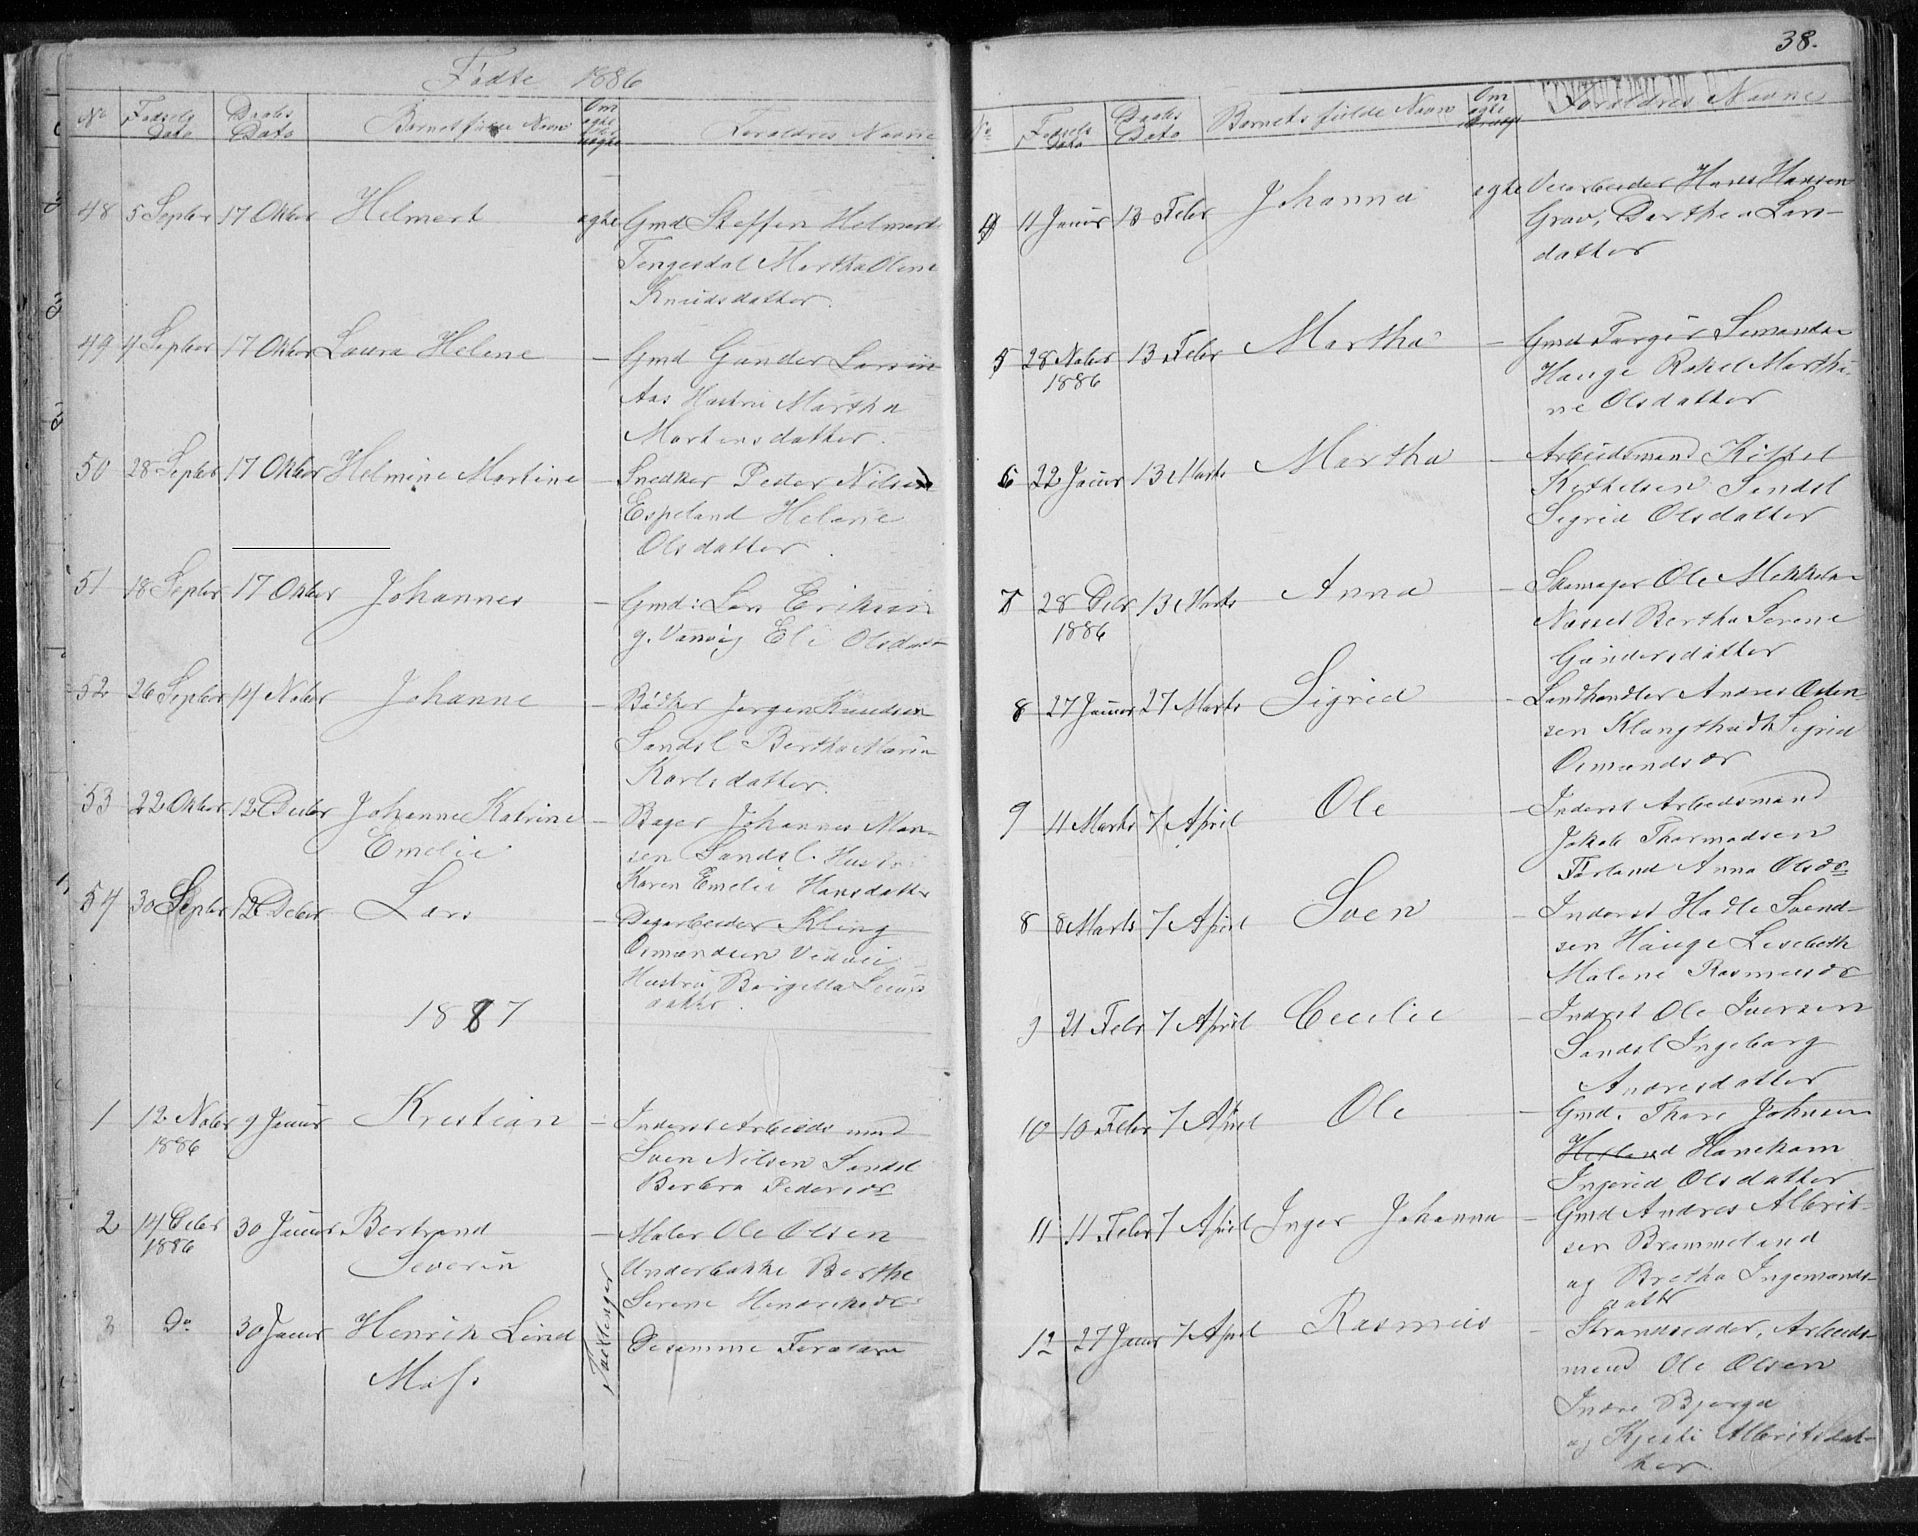 Fødte 1886
No Fødsels Dato Daabs Dato Barnets fulde Navn Om ægte eller uægte Foraldres Navne
48 5 Septbr 17 Oktbr Helmert ægte Gmd Steffen Helmert
Tengesdal Martha Oline
Knudsdatter.
49 4 Septbr 17 Oktbr Laura Helene – Gmd Gunder Larsen
Aas Hustru Martha
Mortensdatter.
50 28 Septbr 17 Oktbr Helmine Martine – Snedker Peder Nilsen
Espeland Helene
Olsdatter.
51 18 Septbr 17 Oktbr Johannes – Gmd: Lars Eriksen
g. Vanvig Eli Olsdatr
52 26 Septbr 14 Novbr Johanne – Bødker Jørgen Knudsen
Sandsl Bertha Maria
Karlsdatter.
53 22 Oktbr 12 Decbr Johanne Katrine – Bager Johannes Mon-
Emelie sen Sandsl. Hustru
Karen Emelie Hansdatter
54 30 Septbr 12 Decbr Lars – Dagarbeider Kling
Osmundsen
Hustru Borgella
datter.
1887
1 12 Novbr 9 Januar Kristian – Inderst Arbeidsmand
1886 Sven Nilsen Sandsl
Berbra Pedersdr
2 14 Decbr 30 Januar Bertrand – Maler Ole Olsen
1886 Severin Underbakke Berthe
Serene Henrikedr
3 Do 30 Januar Henrik Lind Tvillinger Desamme Foraldre
Mos.
38.
No Fødsels Dato Daabs Dato Barnets fulde Navn Om ægte Foraldres Navne
4 11 Januar 13 Febr Johanna ægte Veiarbeider Hans Hansen
Grav, Dorthea Lars-
datter
5 28 Novbr 13 Febr Martha – Gmd Torger
1886 Hauge Rakel Martha-
ne Olsdatter
6 22 Januar 13 Marts Martha – Arbeidsmand Kittel
Kethelsen Sandsl
Sigrid Olsdatter
7 28 Decbr 13 Marts Anna – Skomager Ole Mikkelsen
1886 Bertha Serene
Gundersdatter
8 27 Januar 27 Marts Sigrid – Landhandler Andres Osten-
sen Sigrid
Osmundsdr
9 11 Marts 7 April Ole – Inderst Arbeidsmand
Jakob Thormodsen
Førland Anna Olsdr
8 8 Marts 7 April Sven – Inderst Hadle Svend-
sen Hauge Lisebeth
Malene Rasmusdr
9 21 Febr 7 April Cecilie – Inderst Ole Iversen
Sandsl Ingeborg
Andresdatter
10 10 Febr 7 April Ole – Gmd. Thore Johnsen
Hanekam
Ingerid Olsdatter
11 11 Febr 7 April Inger Johanna – Gmd Andres Albrit-
sen Brommeland
og Bretha Ingemands-
datter
12 27 Januar 7 April Rasmus – Strandsidder, Arbeids-
mand Ole Olsen
Indre Bjerga
og Kjersti Albritsdat-
ter